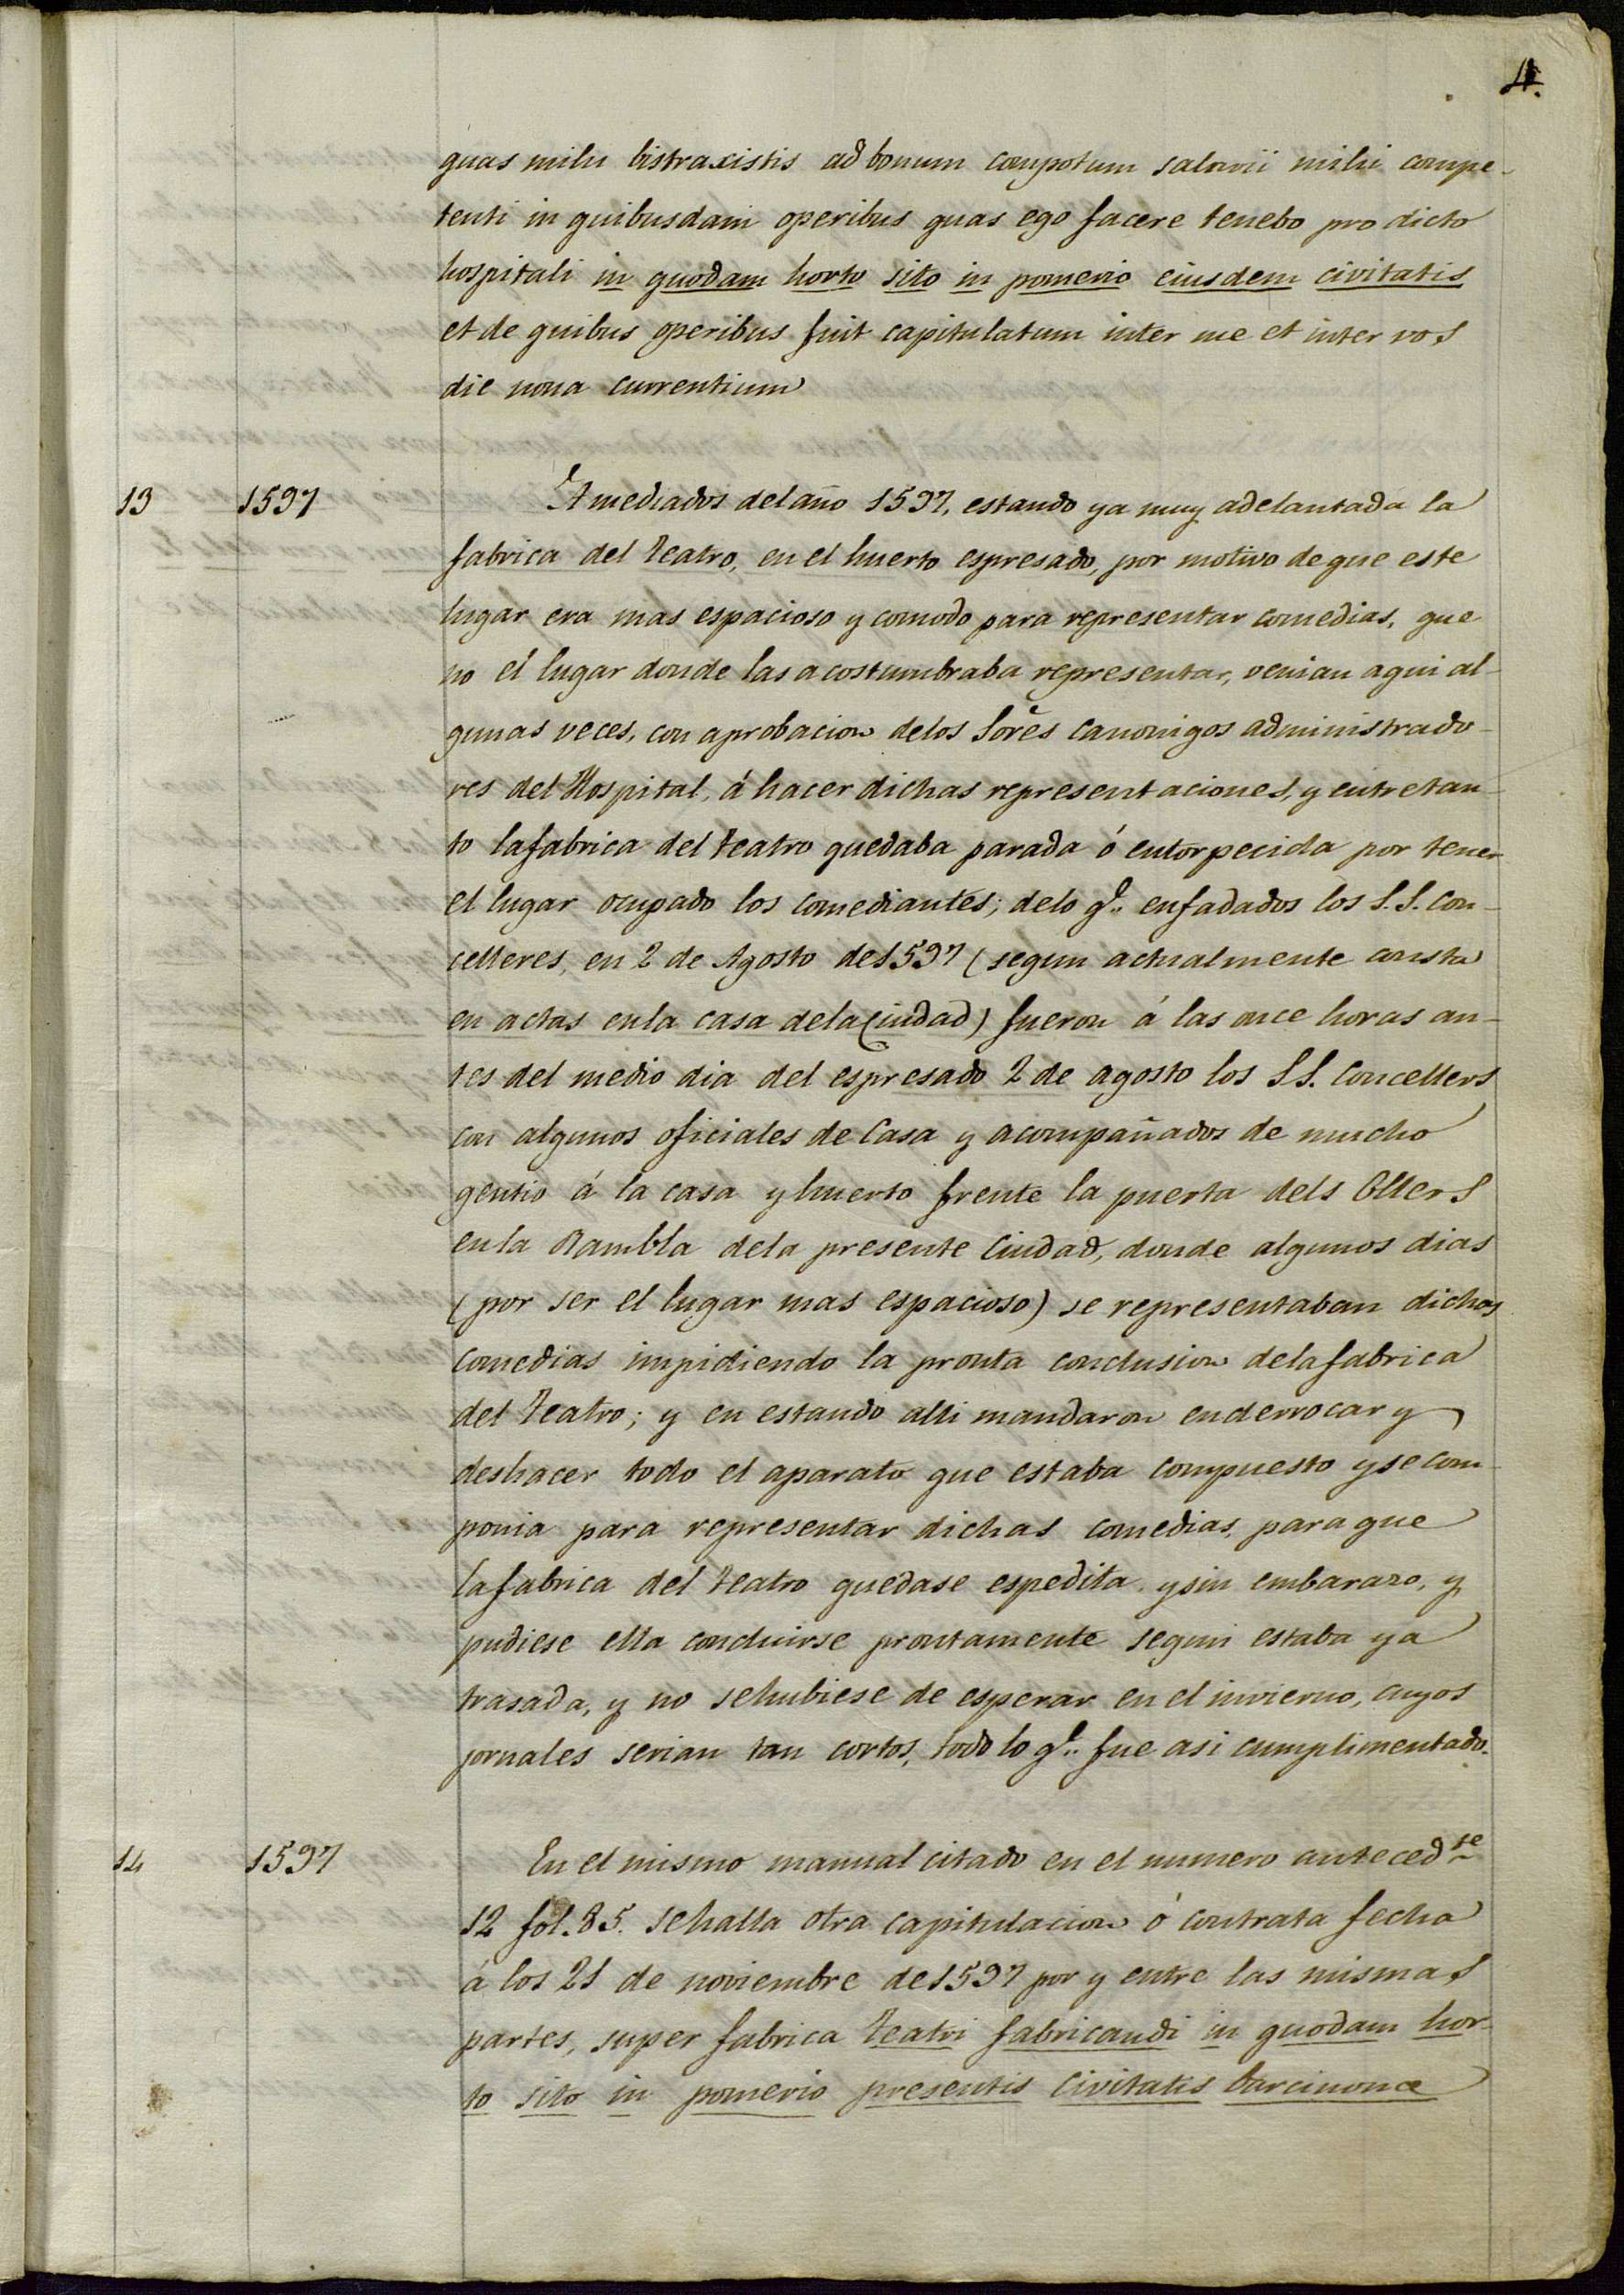 4.
quas mihi bistraxistis ad bonum compotum salarii mihi compe-
tenti in quibusdam operibus quas ego facere tenebo pro dicto
hospitali in quodam horto sito in pomerio eiusdem civitatis
et de quibus operibus fuit capitulatum inter me et inter vos
die nona currentium
13 1597 A mediados del año 1597, estando ya muy adelantada la
fabrica del teatro, en el huerto espresado, por motivo de que este
lugar era mas espacioso y comodo para representar comedias, que
no el lugar donde las acostumbraba representar, venian aqui al-
gunas veces, con aprobacion de los Sores Canonigos administrado-
res del Hospital, á hacer dichas representaciones, y entretan-
to la fabrica del teatro quedaba parada ó entorpecida por tener
el lugar ocupado los comediantes; de lo ql. enfadados los S.S. Con-
celleres, en 2 de Agosto de 1597 (segun actualmente consta
en actas en la casa de la Ciudad) fueron á las once horas an-
tes del medio dia del espresado 2 de agosto los SS. Concellers
con algunos oficiales de Casa y acompañados de mucho
gentio á la casa y huerto frente la puerta dels Ollers
en la Rambla de la presente Ciudad, donde algunos dias
(por ser el lugar mas espacioso) se representaban dichas
comedias impidiendo la pronta conclusion de la fabrica
del Teatro; y en estando alli mandaron enderrocar y
deshacer todo el aparato que estaba compuesto y se com-
ponia para representar dichas comedias, para que
la fabrica del teatro quedase espedita y sin embarazo, y
pudiese ella concluirse prontamente segun estaba ya
trasada, y no se hubiese de esperar en el invierno, cuyos
jornales serian tan cortos, todo lo ql. fue asi cumplimentado.
14 1597 En el mismo manual citado en el numero antecedte
12 fol. 85. se halla otra capitulacion ó contrata fecha
á los 21 de noviembre de 1597 por y entre las mismas
partes, super fabrica Teatri fabricandi in quodam hor-
to sito in pomerio presentis Civitatis barcinonæ